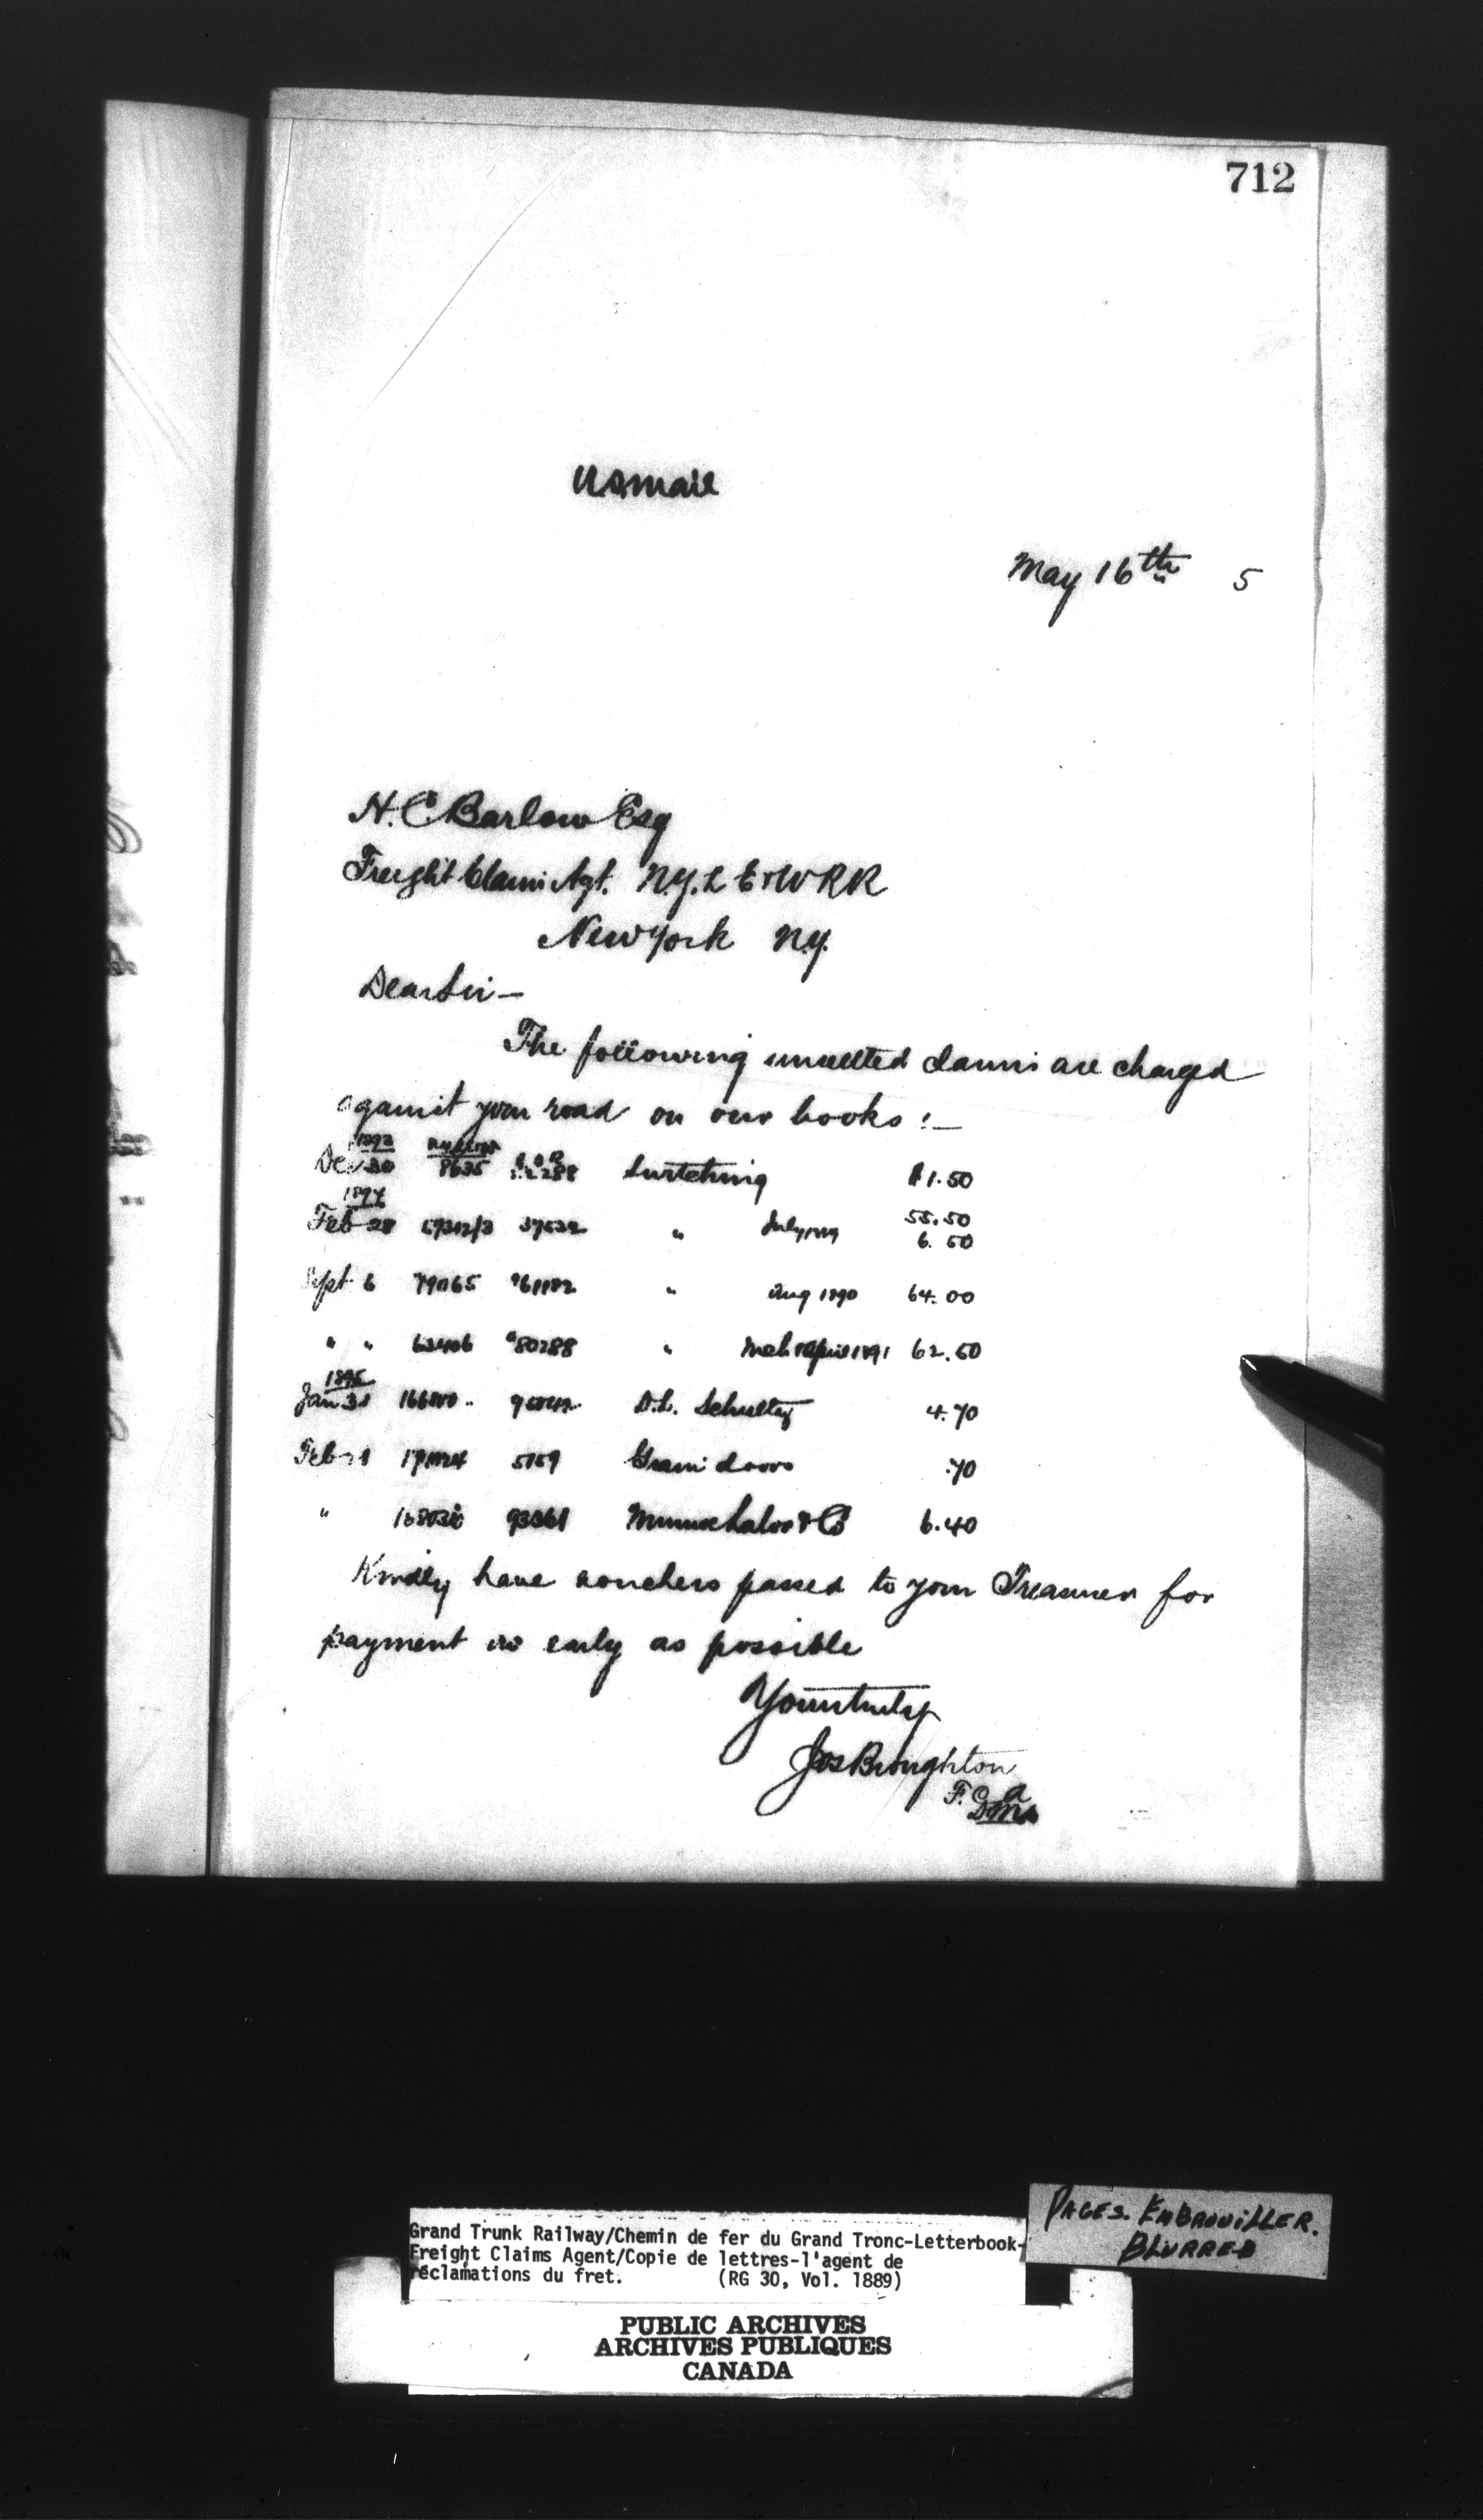 712
US mail
May 16th 5
H. C. Barlow Esq
Freight Claim Agt. N.Y. L E & W RR
New York N.Y.
Dear Sir—
The following unsettled claims are charged
against your road on our books :—
1893
Dec 30 8635 Switching $1.50
1894
Feb 28 37532 " July 55.50
6.50
Sept 6 79065 61182 " Aug 1890 64.00
" " 63406 80288 " Mch & April 1891 62.50
1895
Jan 31 D.L. Schultz 4.70
Feb 5159 Grain doors .70
" 93361 & Co 6.40
Kindly have vouchers passed to your Treasurer for
payment as early as possible
Yours truly
Jos Broughton
F. C. A
Grand Trunk Railway/Chemin de fer du Grand Tronc-Letterbook-
Freight Claims Agent/Copie de lettres-l'agent de
réclamations du fret. (RG 30, Vol. 1889)
PAGES. EMBROUILLER.
BLURRED
PUBLIC ARCHIVES
ARCHIVES PUBLIQUES
CANADA